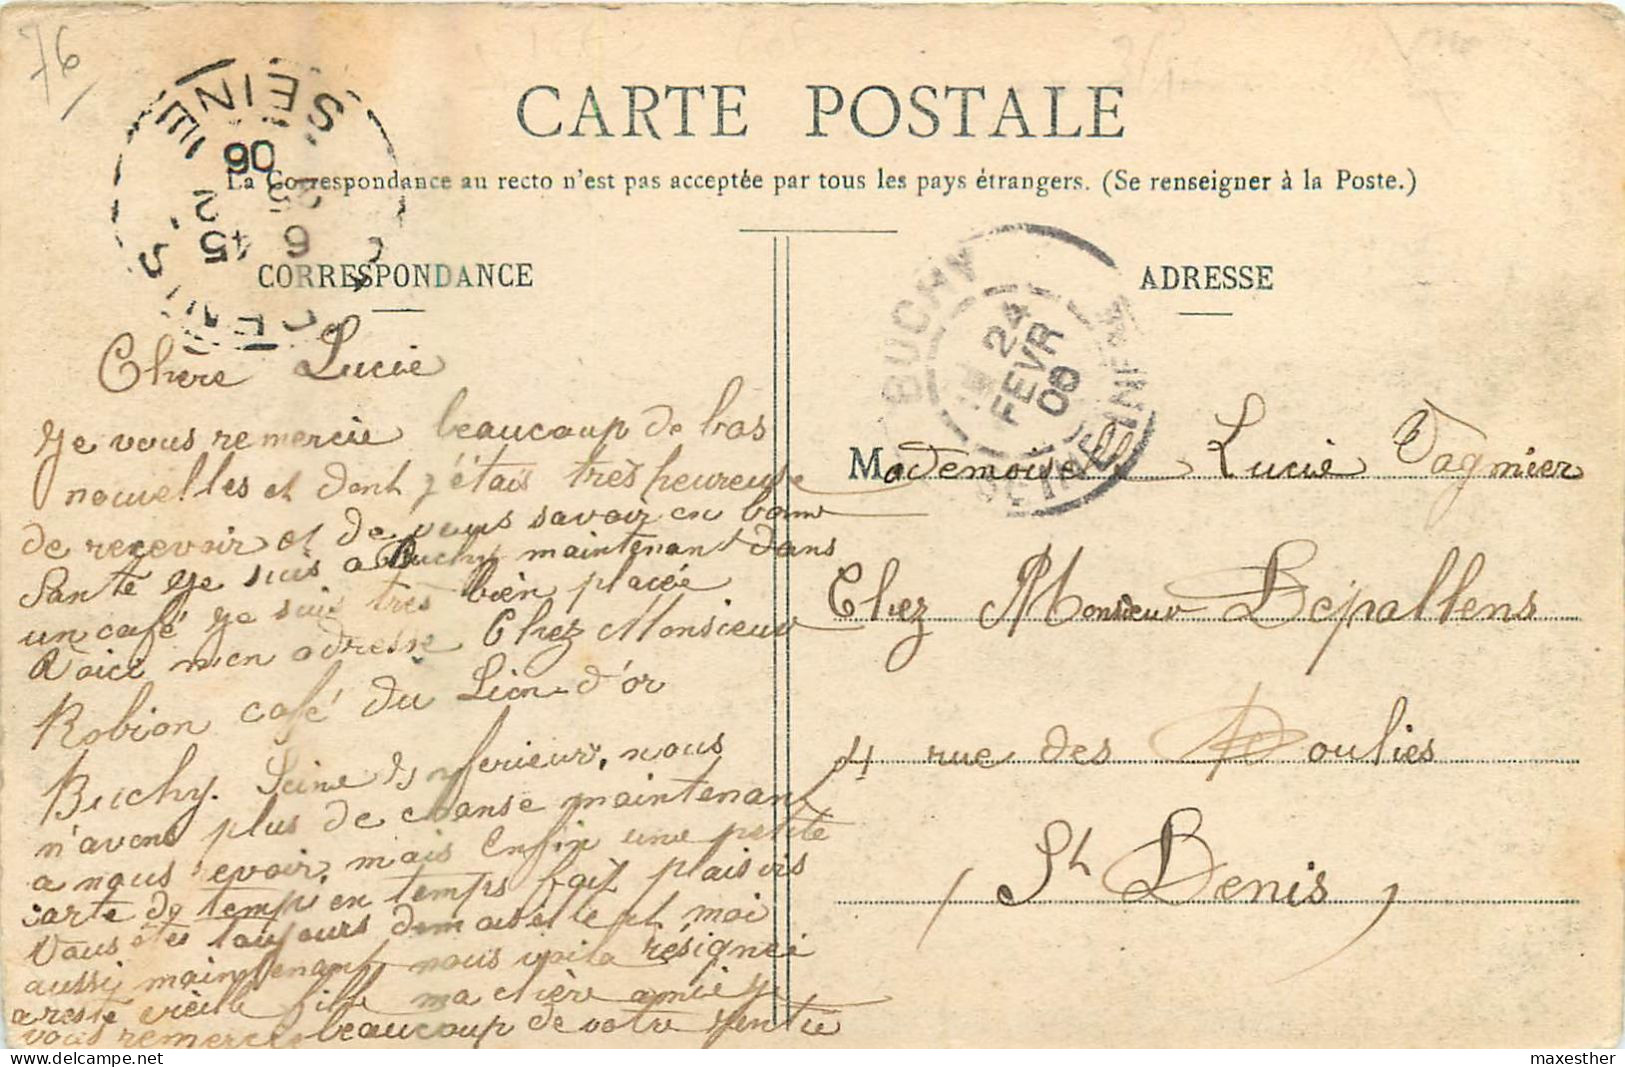 76
CARTE POSTALE
La Correspondance au recto n'est pas acceptée par tous les pays étrangers. (Se renseigner à la Poste.)
CORRESPONDANCE
Chere Lucie
Je vous remercie beaucoup de bos
nouvelles et dont j'étais très heureuse
de recevoir et de vous savoir en bonne
Sante Je suis a Buchy maintenant dans
un café je suis très bien placée
Voici mon adresse Chez Monsieur
Robion café du Lion-d'or
Buchy. Seine Inferieur, nous
n'avons plus de chanse maintenant
a nous evoir, mais Enfin une petite
carte de temps en temps fait plaisir
Vous êtes toujours demoiselle et moi
aussi maintenant nous voila résignée
a reste vieille fille ma chère amie je
vous remercie beaucoup de votre
SEINE
06
15
6
ST DENIS
BUCHY
24
FEVR
06
SEINE INFRE
ADRESSE
Mademoiselle Lucie Tagnier
Chez Monsieur Depallens
4 rue des Poulies
St Denis
maxesther